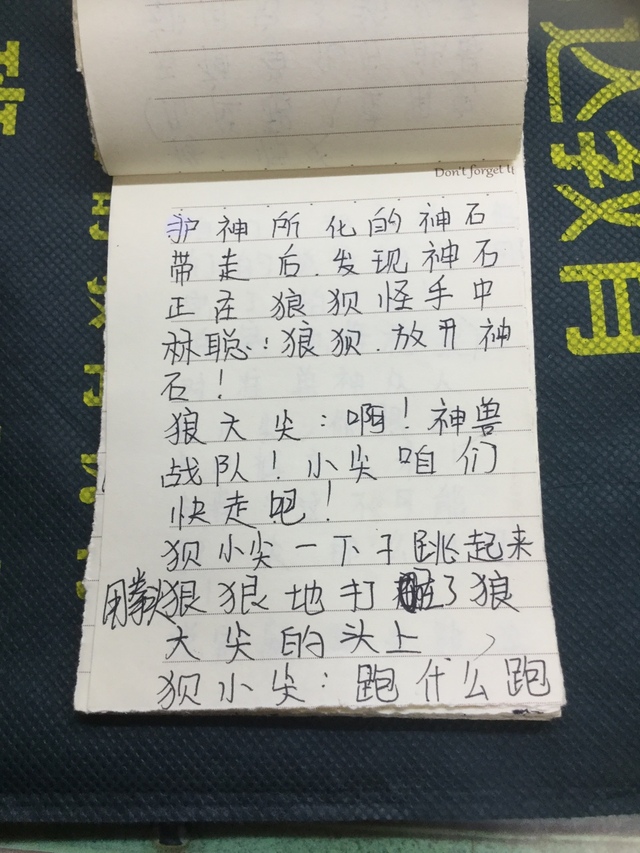 Don't forget it
护神所化的神石
带走后.发现神石
正在狼狈怪手中
林聪:狼狈.放开神
石!
狼大尖:啊!神兽
战队!小尖咱们
快走吧!
狈小尖一下子跳起来
用拳头狠狠地打在了狼
大尖的头上,
狈小尖:跑什么跑